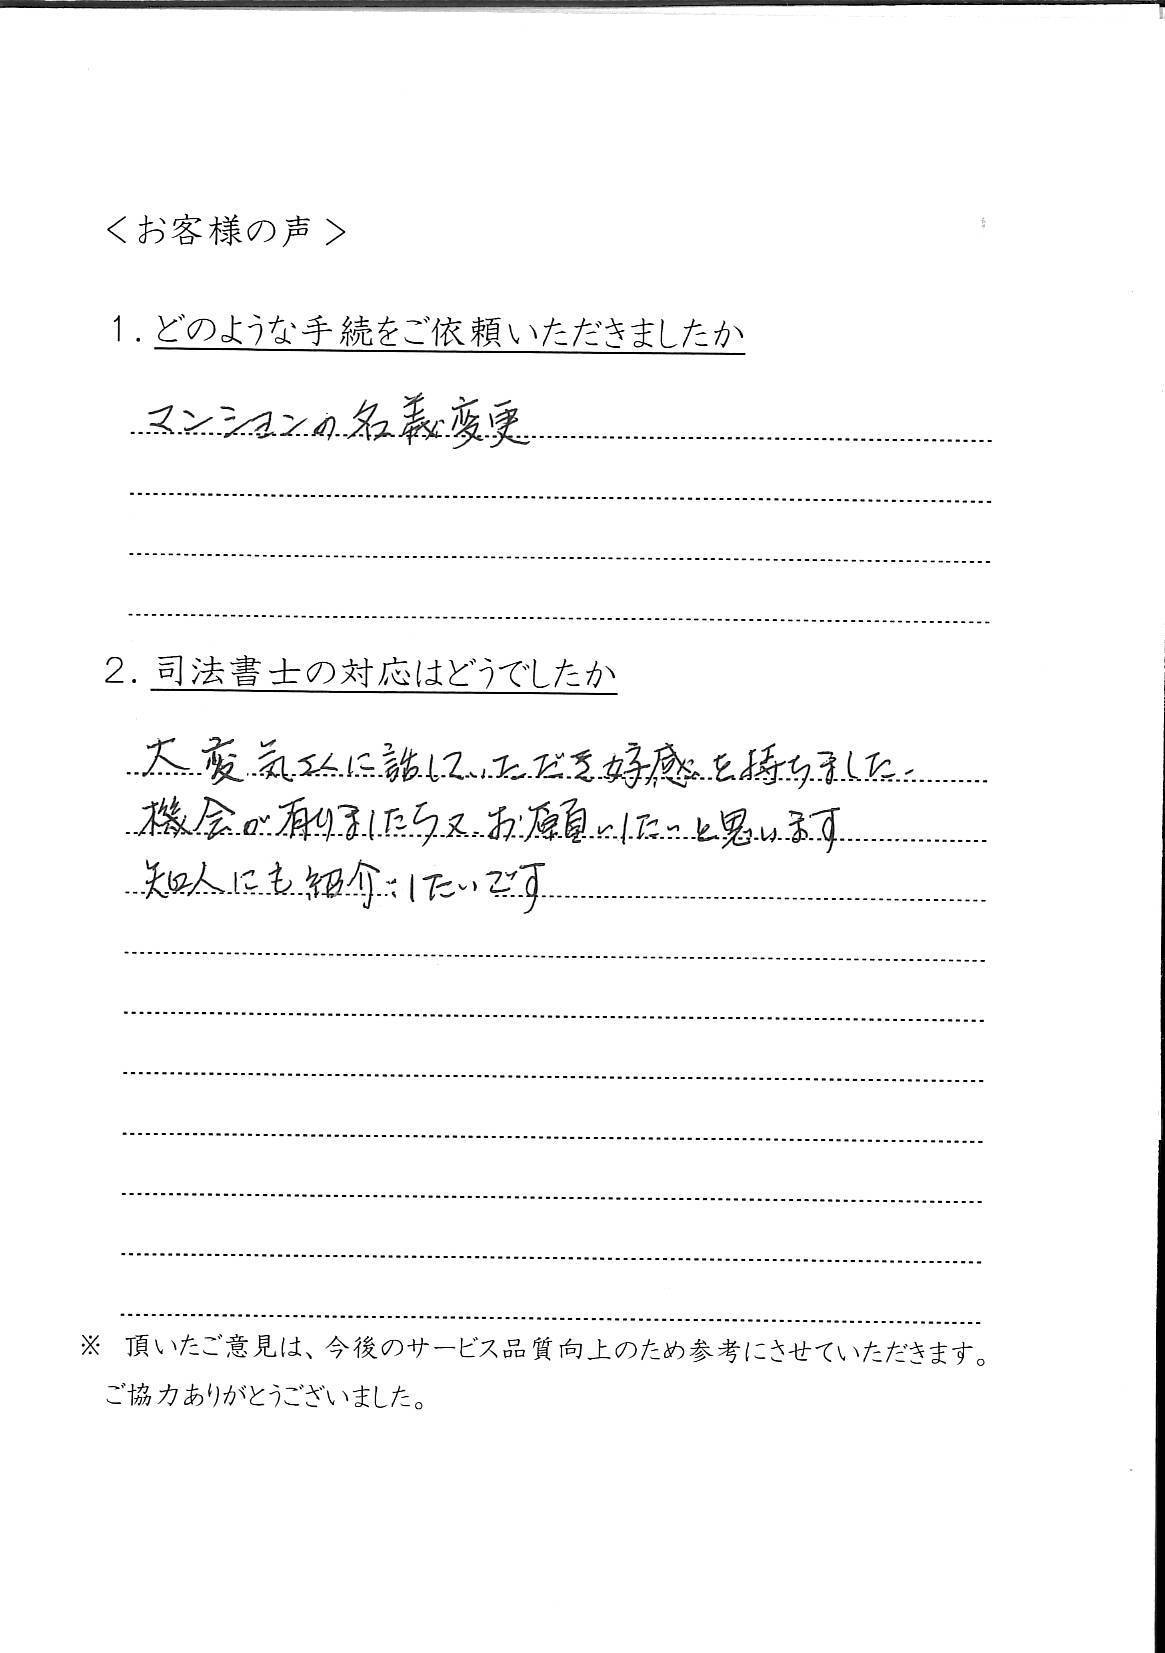 ＜お客様の声＞
１．どのような手続をご依頼いただきましたか
マンションの名義変更
２．司法書士の対応はどうでしたか
大変気さくに話していただき好感を持ちました。
機会が有りましたら又お願いしたいと思います
知人にも紹介したいです
※　頂いたご意見は、今後のサービス品質向上のため参考にさせていただきます。
ご協力ありがとうございました。